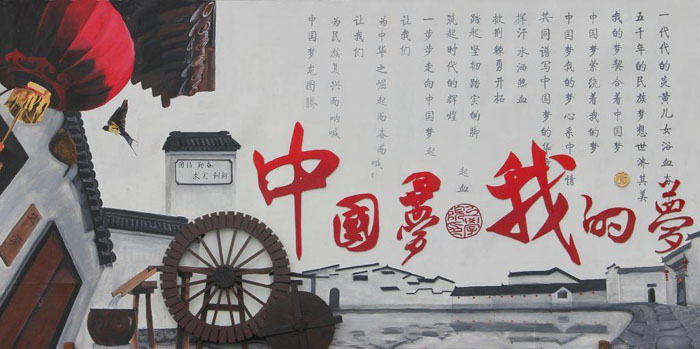 一代代的炎黄儿女浴血
五千年的民族梦想世其美
我的梦契合着中国梦
中国梦萦绕着我的梦
中国梦我的梦心系中情
共同谱写中国梦的华
挥汗水洒热血
披荆棘勇开拓
踏起坚韧踏实的脚
筑起时代的辉煌
一步步走向中国梦
让我们
为中华之崛起而奋
让我们
为民族复兴而呐喊
中国梦龙图腾
团结 勤奋
求实 创新
中國夢 我的夢